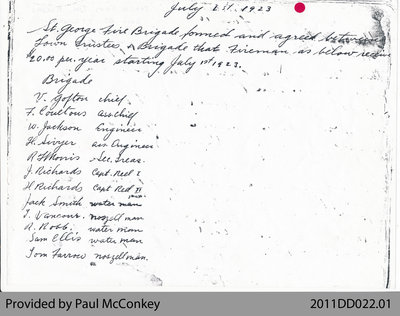 July 1st 1923
St. George Fire Brigade formed and agreed between
Town Trustees & Brigade that Fireman as below receive
$20.00 per year starting July 1st 1923.
Brigade
V. Gofton chief
F. Coutous ass. chief
W. Jackson Engineer
H. Sivyer ass. Engineer
R. H. Morris Sec. Treas.
J. Richards Capt. Reel I
H Richards Capt Reel II
Jack Smith water man
T. Vancour. nozzell man
A. Robb. water man
Sam Ellis water man
Tom Farrow nozzell man.
Provided by Paul McConkey
2011DD022.01